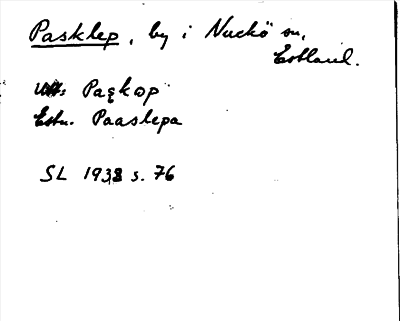 Pasklep, by i Nuckö sn,
Estland.
Utt: Pąkop
Estn. Paaslepa
SL 1938 s. 76